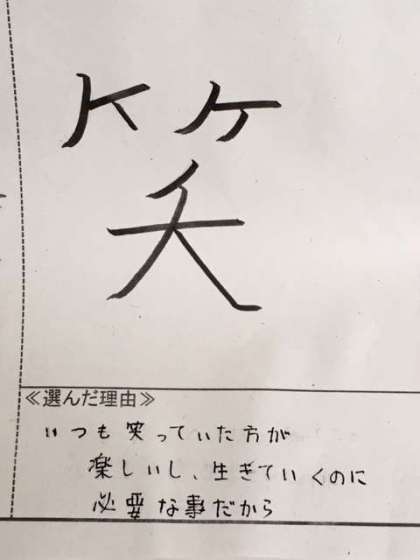 笑
≪選んだ理由≫
いつも笑っていた方が
楽しいし、生きていくのに
必要な事だから